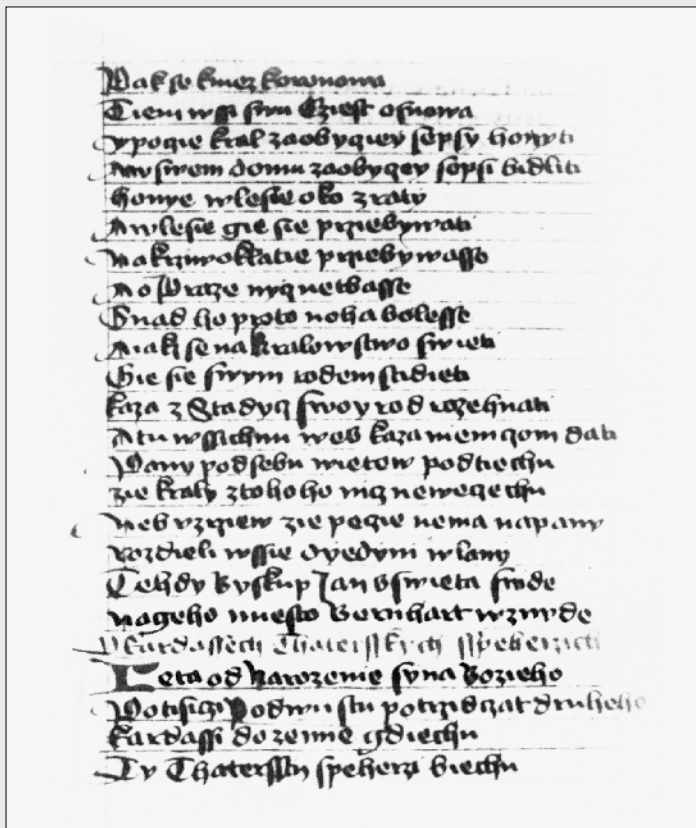 Pak se kniez kowarowa
Tiem wssi swu Cziest osnowa
ypogie kral zaobyquey sepsy honyti
Aw swem domu zaobyqey sepsi bidliti
honye wlesie oko zraty
Awlesie gie sie prziebywati
Nakrziwoklatie prziebywasse
Ao Praze nyquetbasse
Snad ho proto noha bolesse
Aiakz se nakralowstwo swieti
Gie sie swym rodem stidieti
kaza z Stadycz swoy rod rozehnati
Atu wssichnu wes kaza niemqom dati
Pany podsebu wietew podtiechu
zie kraly ztoho ho nicz newezechu
neb vzrziew zie pogie nema napany
rozdieli wssie dyedyni wlany
Tehdy Byskup Jan bswieta snide
nageho miesto Bernhart wznyde
O kardassech Thatersskych sspeherzich
Leta od Narozenie syna Bozieho
Potisiczi Podwustu potrzidczat druheho
kardassi dozemie gdiechu
Ty Thaterssti speherzi biechu